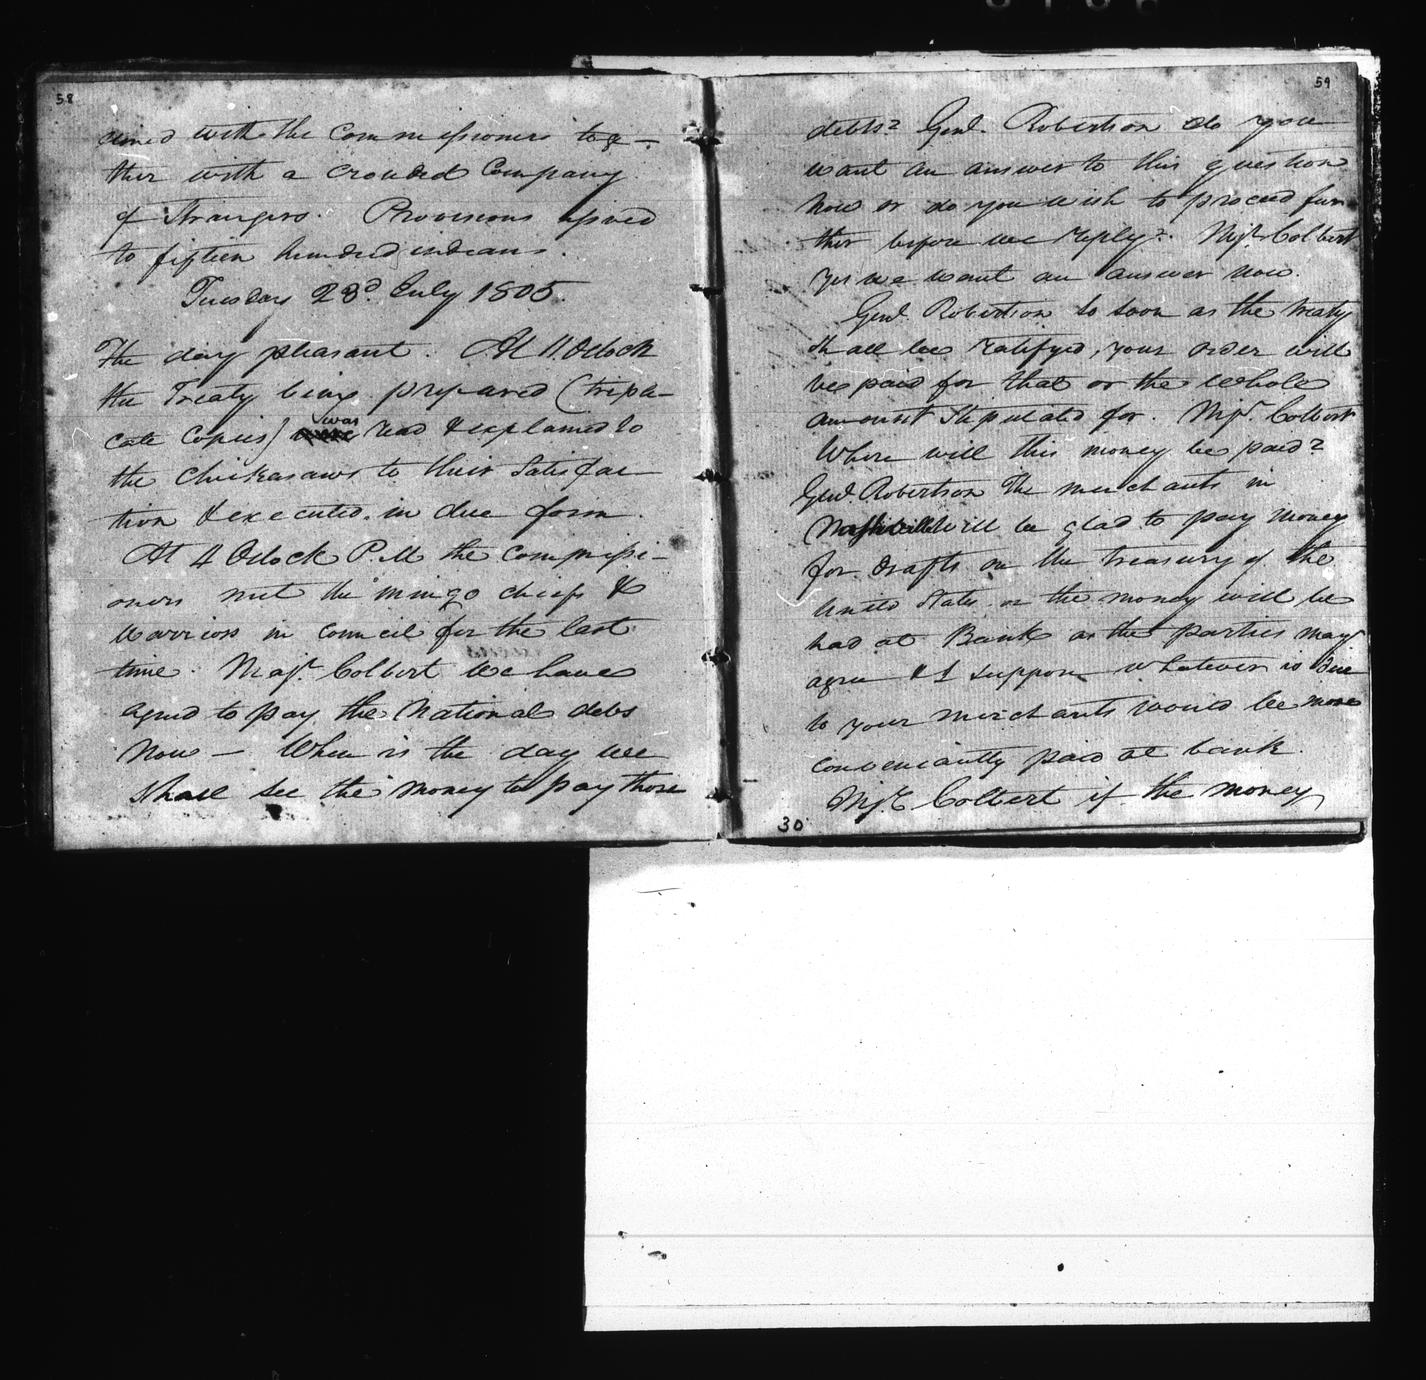 58
dined with the Commissioners toge-
ther with a crouded Company
of Strangers. Provisions issued
to fiftien hundred indians.
Tuesday 23d July 1805.
The day pleasant. At 11 Oclock
the Treaty being prepared (tripli-
cate Copies) was read & explained to
the Chickasaws to their Satisfac
tion & executed in due form.
At 4 Oclock P.M the commissi-
oners met the mingo chiefs &
Warriors in Council for the last
time. Majr. Colbert We have
agreed to pay the National debs
now — When is the day we
shall see the money to pay those
59
debts? Genl. Robertson do you
want an answer to this question
now or do you wish to proceed fur
ther before we reply? Majr Colbert
yes we want an answer now.
Genl Robertson So soon as the treaty
shall be ratifyed, your order will
be paid for that or the whole
amount Stipulated for. Majr. Colbert
Where will this money be paid?
Genl. Robertson The merchants in
Nashville will be glad to pay money
for drafts on the treasury of the
United States or the money will be
had at Bank as the parties may
agree & I suppose whatever is due
to your merchants would be more
conveniantly paid at bank.
Majr Colbert if the money
30